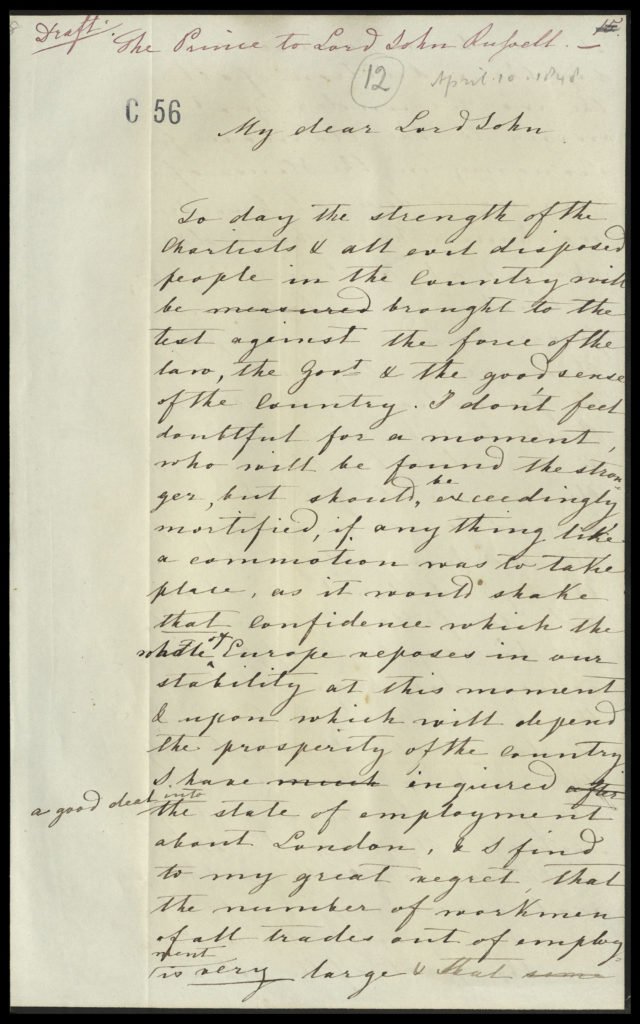 Draft. The Prince to Lord John Russell. —
15.
12
April. 10. 1848
C 56
My dear Lord John
To day the strength of the
Chartists & all evil disposed
people in the Country will
be measured brought to the
test against the force of the
law, the Govt & the good sense
of the Country. I don't feel
doubtful for a moment,
who will be found the stron-
ger, but should be exceedingly
mortified, if anything like
a commotion was to take
place, as it would shake
that confidence which the
whole of Europe reposes in our
stability at this moment
& upon which will depend
the prosperity of the country
I have much inquired after
a good deal into
the state of employment
about London, & I find
to my great regret, that
the number of workmen
of all trades out of employ-
ment
is very large & that some